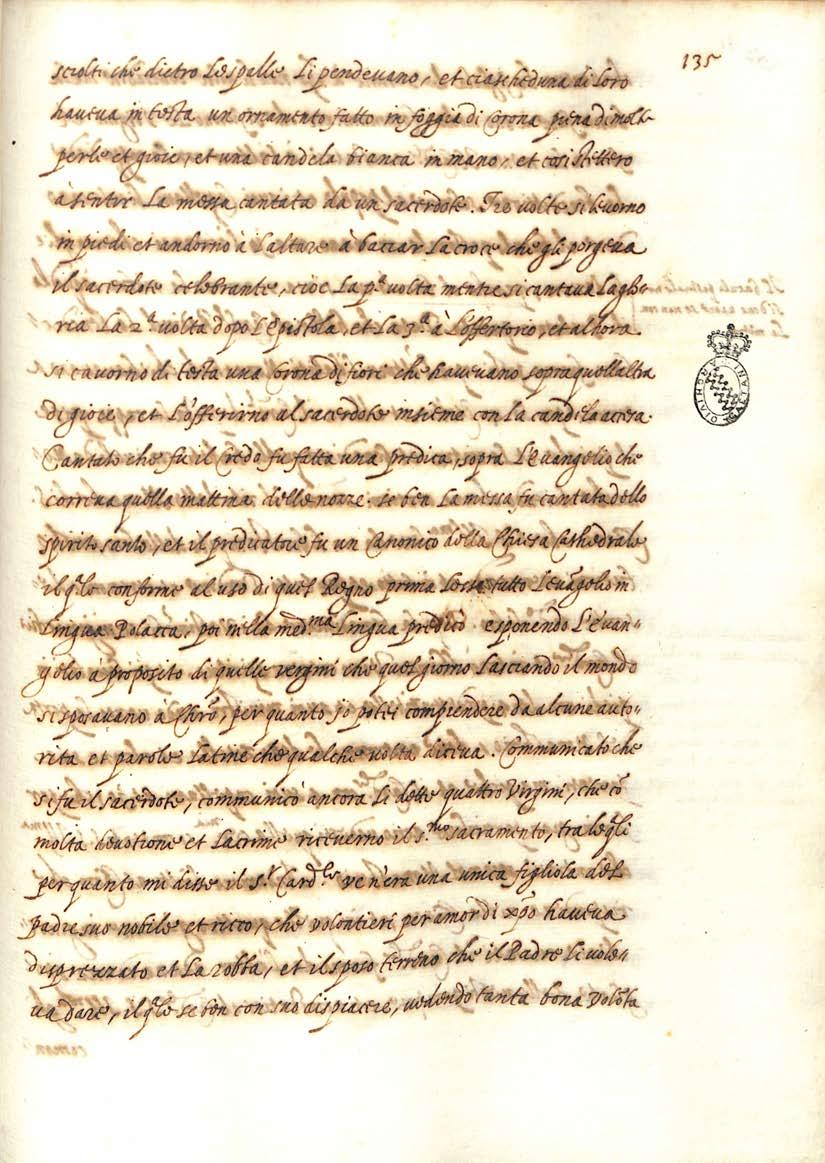 135
sciolti che dietro le spalle li pendevano, et ciascheduna di loro
haveva in testa un ornamento fatto in foggia di Corona piena di molte
perle et gioie, et una candela bianca in mano, et così stettero
à sentir la messa cantata da un sacerdote. Tre volte si levorno
in piedi et andorno à l'altare à baciar la croce che gli porgeva
il sacerdote celebrante, cioe la pª volta mentre si cantava la glo-
ria la 2ª volta dopo l'epistola, et la 3ª à l'offertorio, et alhora
si cavorno di testa una Corona di fiori che havevano sopra quell'altra
di gioie, et l'offerirno al sacerdote insieme con la candela accesa.
Cantato che fu il Credo fu fatta una predica, sopra l'evangelio che
correva quella mattina delle nozze. se ben la messa fu cantata dello
spirito santo, et il predicatore fu un Canonico della Chiesa Cathedrale
il qle conforme al uso di quel Regno prima lesse tutto l'evãgelio in
lingua Polacca, poi nella med.ma lingua predicò esponendo l'evan-
gelio a proposito di quelle vergini che quel giorno lasciando il mondo
si sposavano à Chrõ, per quanto io potei comprendere da alcune auto-
rita et parole latine che qualche volta diceva. Communicato che
si fu il sacerdote, communicò ancora li dette quattro Virgini, che cõ
molta devotione et lacrime riceverno il s.mo sacramento, tra le qli
per quanto mi disse il s.r Card.le ve n'era una unica figliola del
padre suo nobile et ricco, che volontieri per amor di xpõ haveva
disprezzato et la robba, et il sposo terreno che il Padre li vole-
va dare, il qle se ben con suo dispiacere, vedendo tanta bona volõta